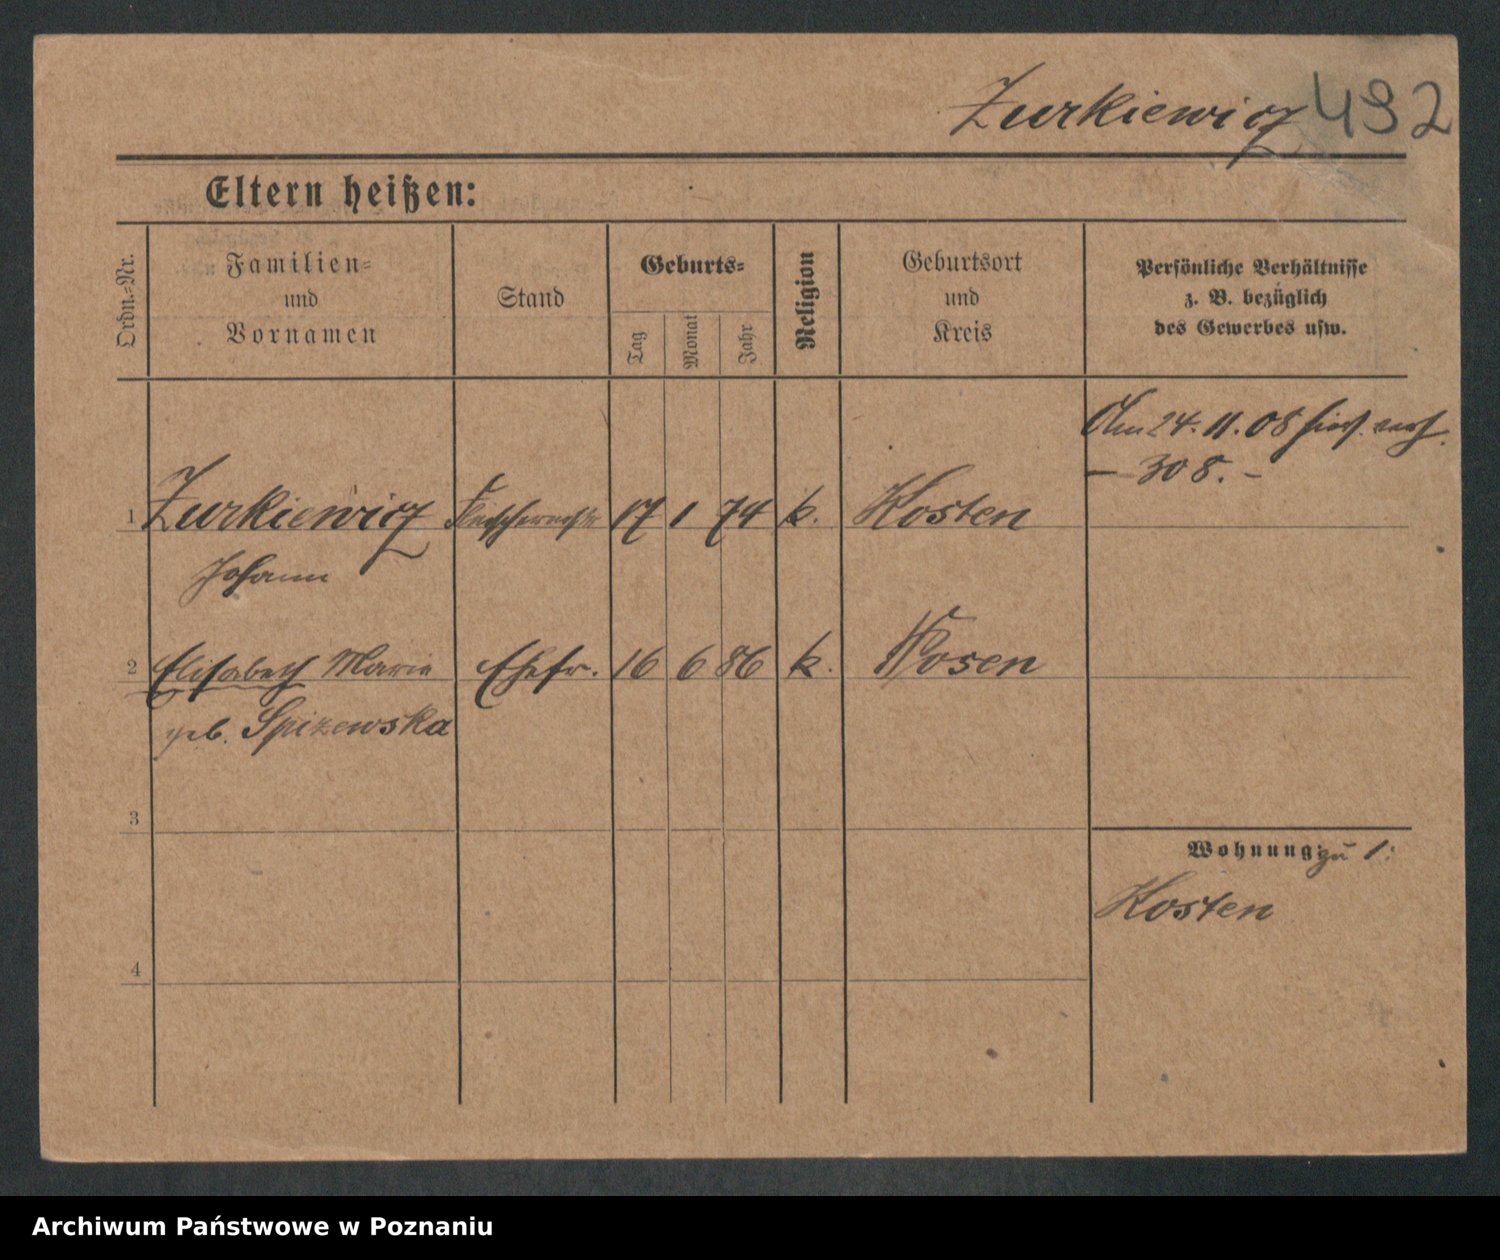 Zurkiewicz 492
Eltern heißen:
Ordn.=Nr.
Familien=
und
Vornamen
Stand
Geburts=
Tag
Monat
Jahr
Religion
Geburtsort
und
Kreis
Persönliche Verhältnisse
z. B. bezüglich
des Gewerbes usw.
Am 24.11.08 hier verh.
— 308. –
1 Zurkiewicz 17 1 74 k. Kosten
Johann
2 Elisabeth Maria Ehefr. 16 6 86 k. Posen
geb. Spizewska
3
Wohnung: zu 1:
Kosten
4
Archiwum Państwowe w Poznaniu